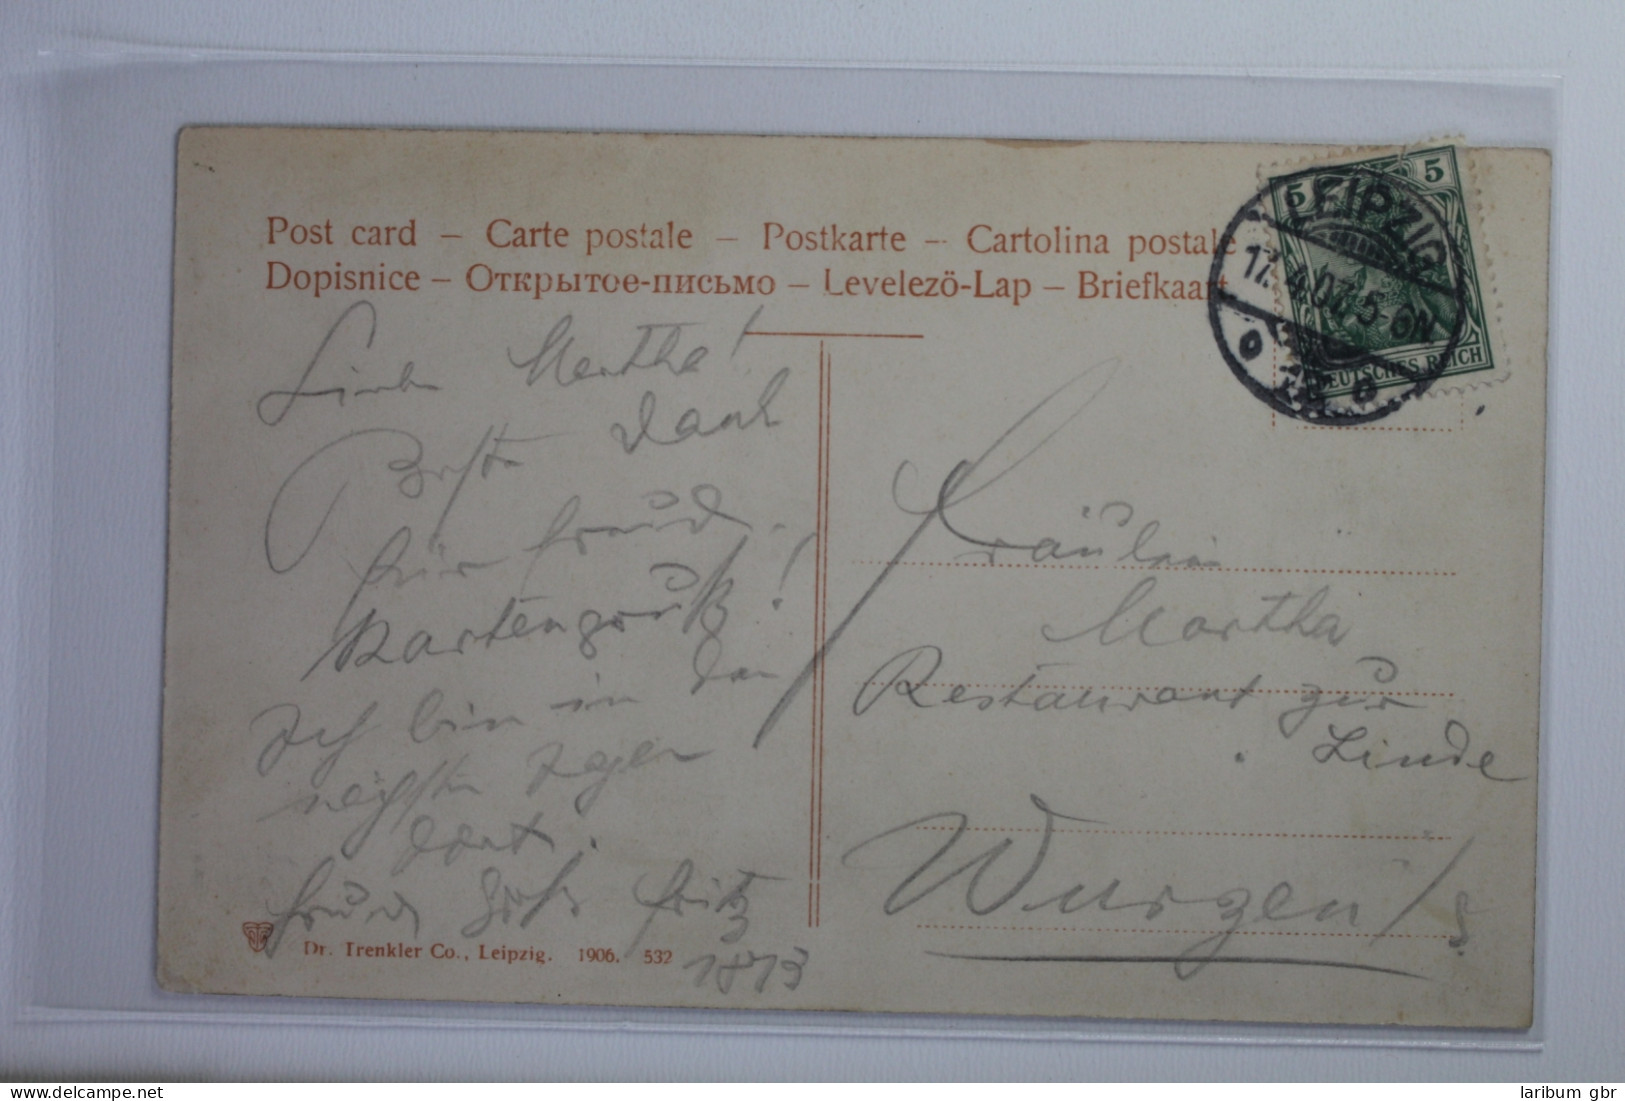 Post card – Carte postale – Postkarte – Cartolina postale
Dopisnice – Открытое-письмо – Levelezö-Lap – Briefkaart
5 5
LEIPZIG
17.4.07. 5-6N
DEUTSCHES REICH
Liebe Martha!
Besten Dank
für
Kartengruß!
Ich bin in den
nächsten Tagen
dort.
Fritz
Fräulein
Martha
Restaurant zur
Linde
Wurzen / S
Dr. Trenkler Co., Leipzig. 1906. 532
1873
laribum gbr